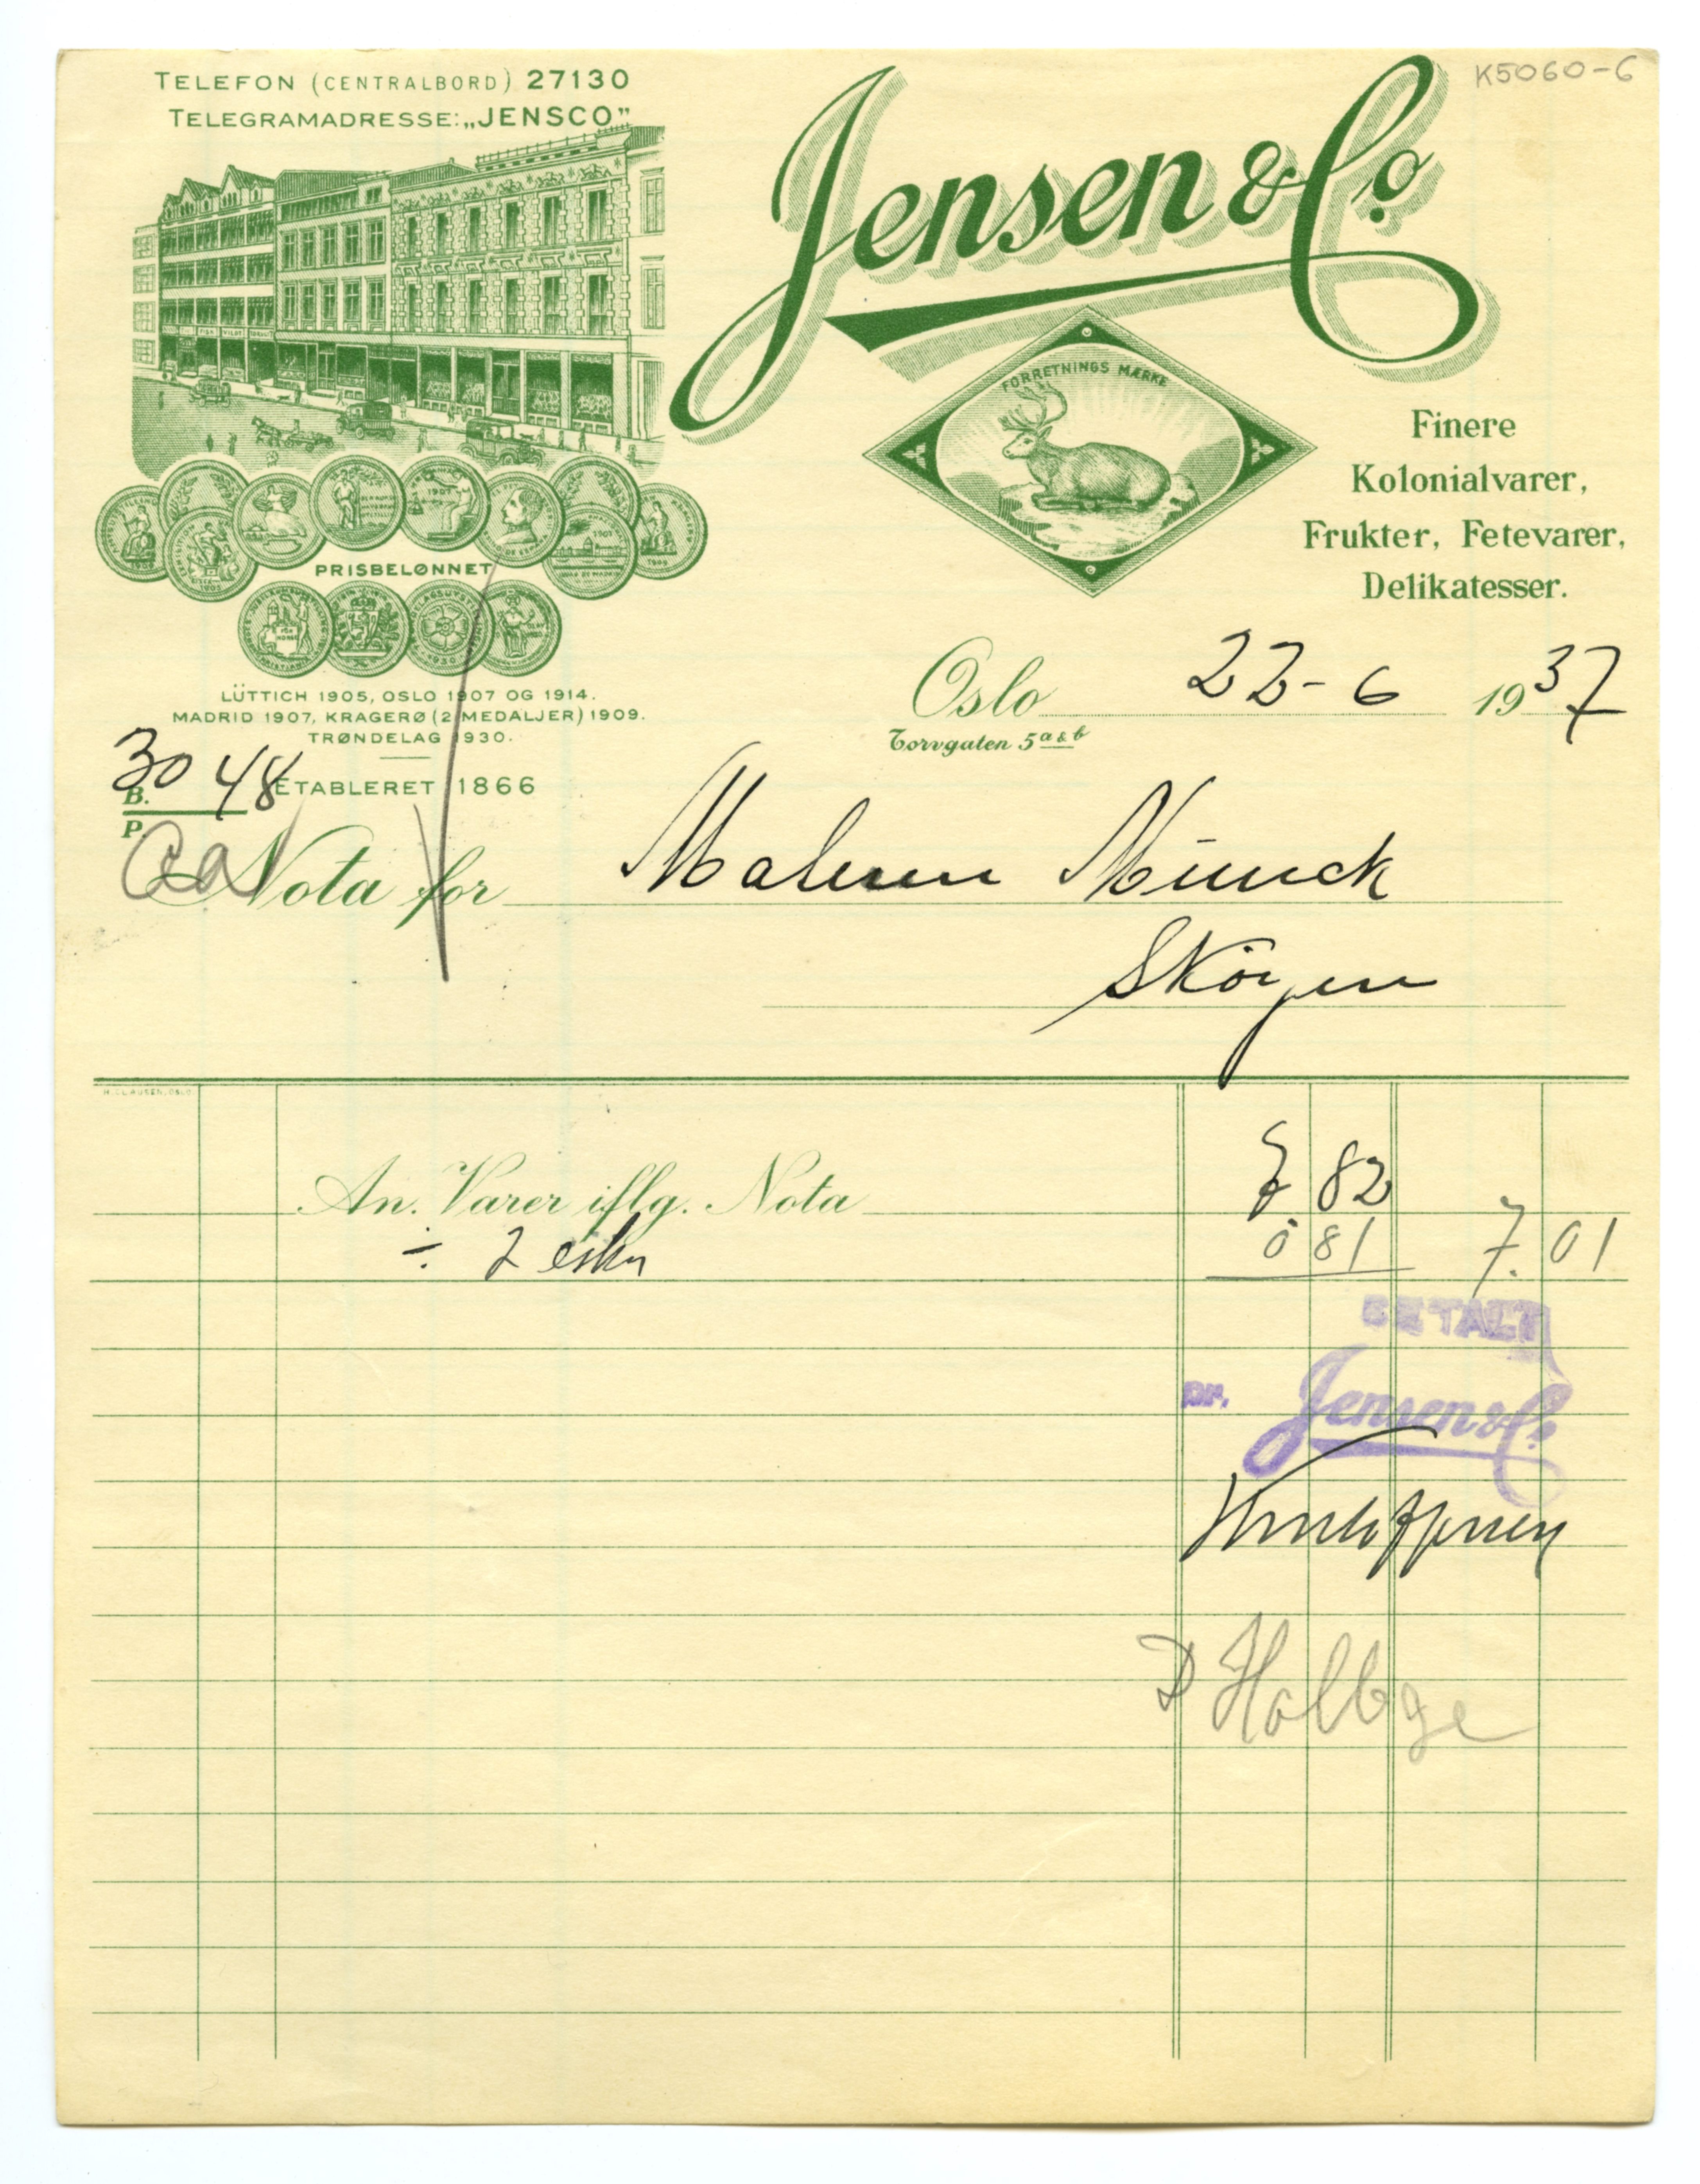 K5060-6
TELEFON (CENTRALBORD) 27130
TELEGRAMADRESSE: „JENSCO”
Jensen & Co
FORRETNINGS MÆRKE
Finere
Kolonialvarer,
Frukter, Fetevarer,
Delikatesser.
PRISBELØNNET
LÜTTICH 1905, OSLO 1907 OG 1914.
MADRID 1907, KRAGERØ (2 MEDALJER) 1909.
TRØNDELAG 1930.
ETABLERET 1866
Oslo 22-6 1937
Torvgaten 5 a & b
30 48
B.
P.
Nota for Maleren Munck
Sköyen
H. CLAUSEN, OSLO.
An. Varer iflg. Nota 7 82
÷ 2 esker 0 81 7.01
BETALT
pr. Jensen & Co